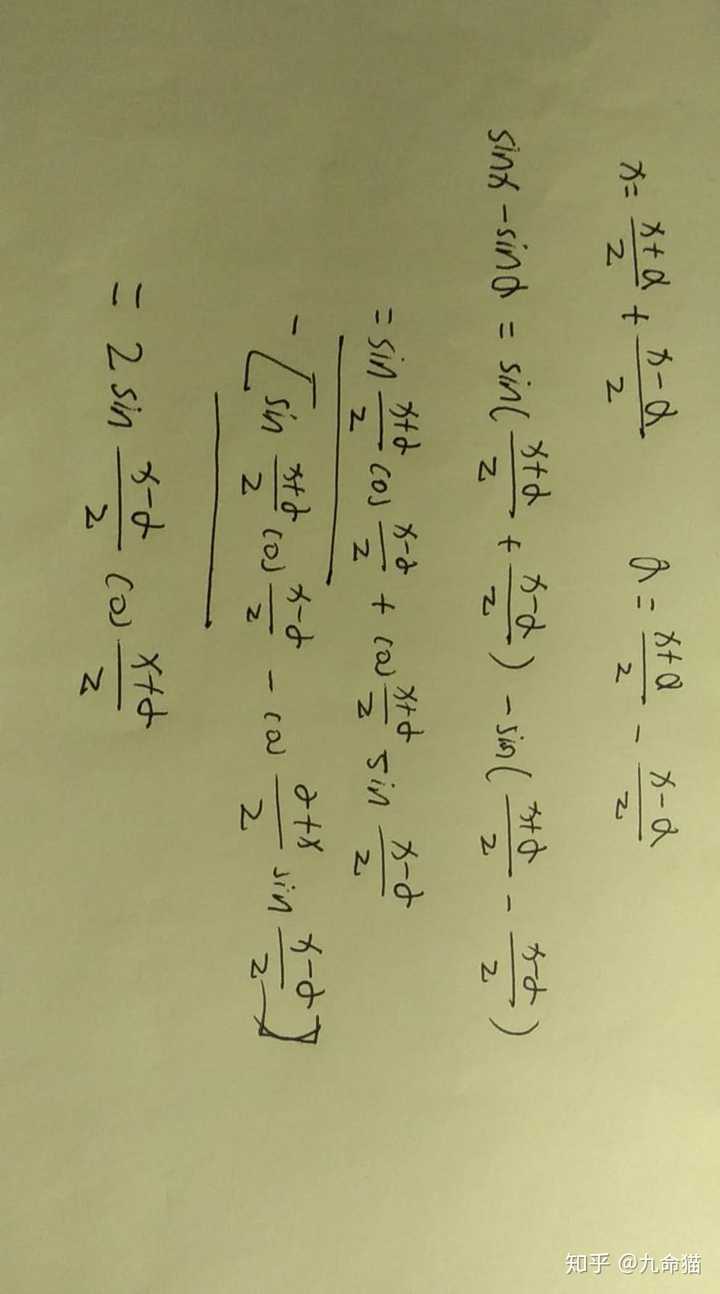 x = (x+α)/2 + (x-α)/2 α = (x+α)/2 - (x-α)/2
sinx - sinα = sin( (x+α)/2 + (x-α)/2 ) - sin( (x+α)/2 - (x-α)/2 )
= sin (x+α)/2 cos (x-α)/2 + cos (x+α)/2 sin (x-α)/2
- [ sin (x+α)/2 cos (x-α)/2 - cos (α+x)/2 sin (x-α)/2 ]
= 2 sin (x-α)/2 cos (x+α)/2
知乎 @九命猫